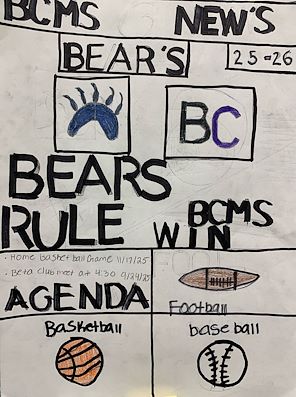 BCMS NEW'S
BEAR'S 25-26
BC
BEARS
RULE BCMS
WIN
· Home Basketball Game 11/17/25
· Beta Club meet at 4:30 9/24/25
AGENDA
Football
Basketball
baseball